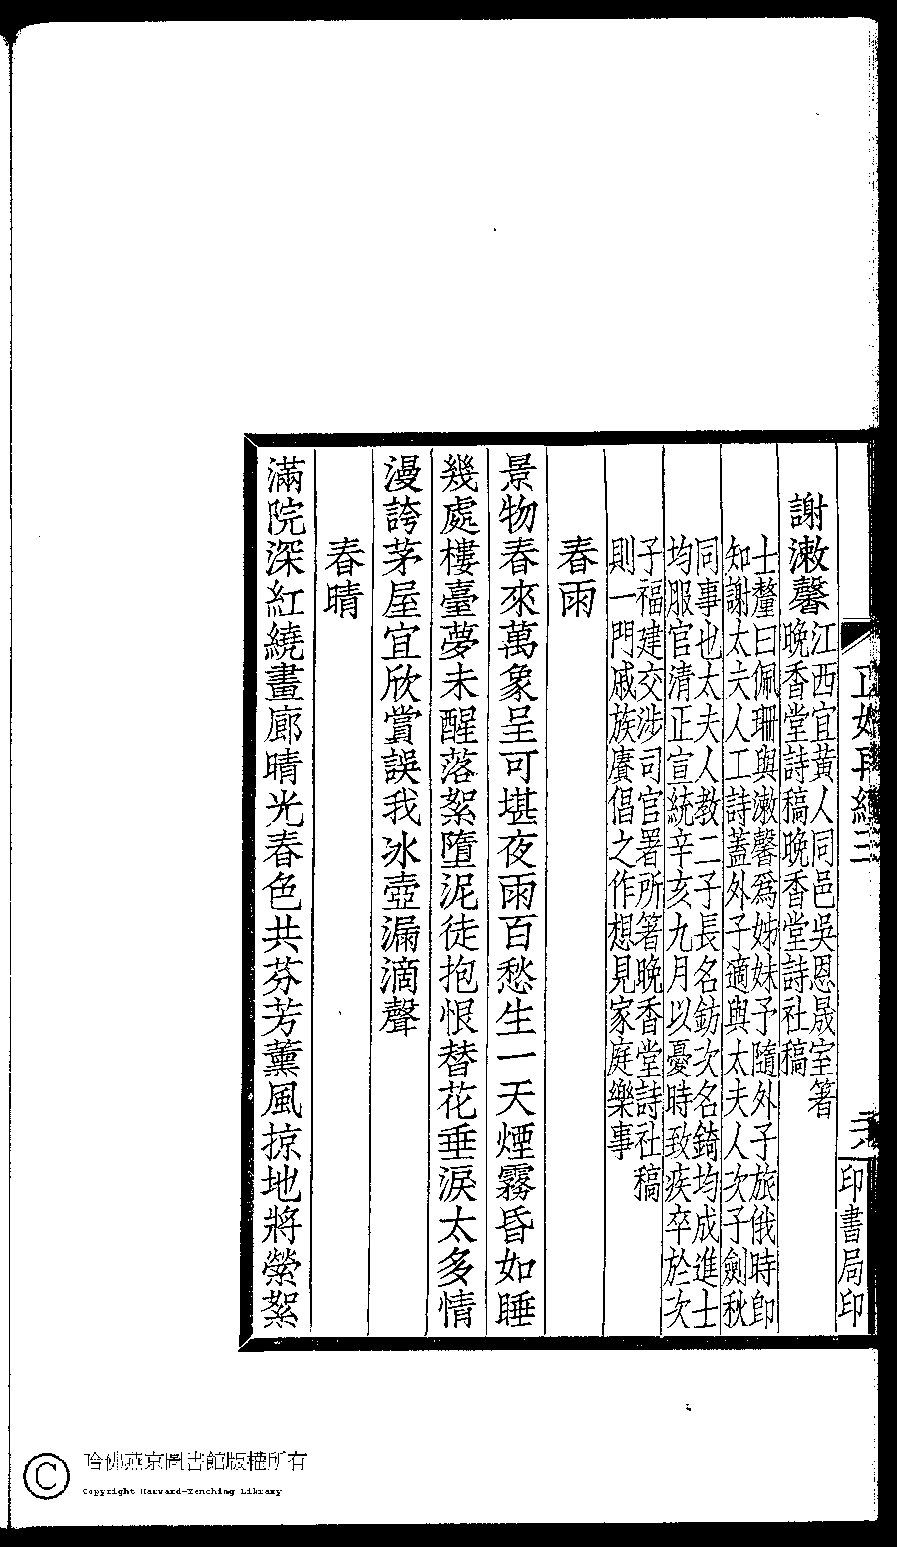 正始再續三
六
印書局印
謝漱馨
江西宜黃人同邑吳恩晟室箸
晚香堂詩稿晚香堂詩社稿
士釐曰佩珊與漱馨爲姊妹予隨外子旅俄時卽
知謝太夫人工詩蓋外子適與太夫人次子劍秋
同事也太夫人教二子長名鈁次名錡均成進士
均服官清正宣統辛亥九月以憂時致疾卒於次
子福建交涉司官署所箸晚香堂詩社稿
則一門戚族賡倡之作想見家庭樂事
春雨
景物春來萬象呈可堪夜雨百愁生一天煙霧昏如睡
幾處樓臺夢未醒落絮墮泥徒抱恨替花垂淚太多情
漫誇茅屋宜欣賞誤我冰壺漏滴聲
春晴
滿院深紅繞畫廊晴光春色共芬芳薰風掠地將縈絮
哈佛燕京圖書館版權所有
Copyright Harvard-Yenching Library